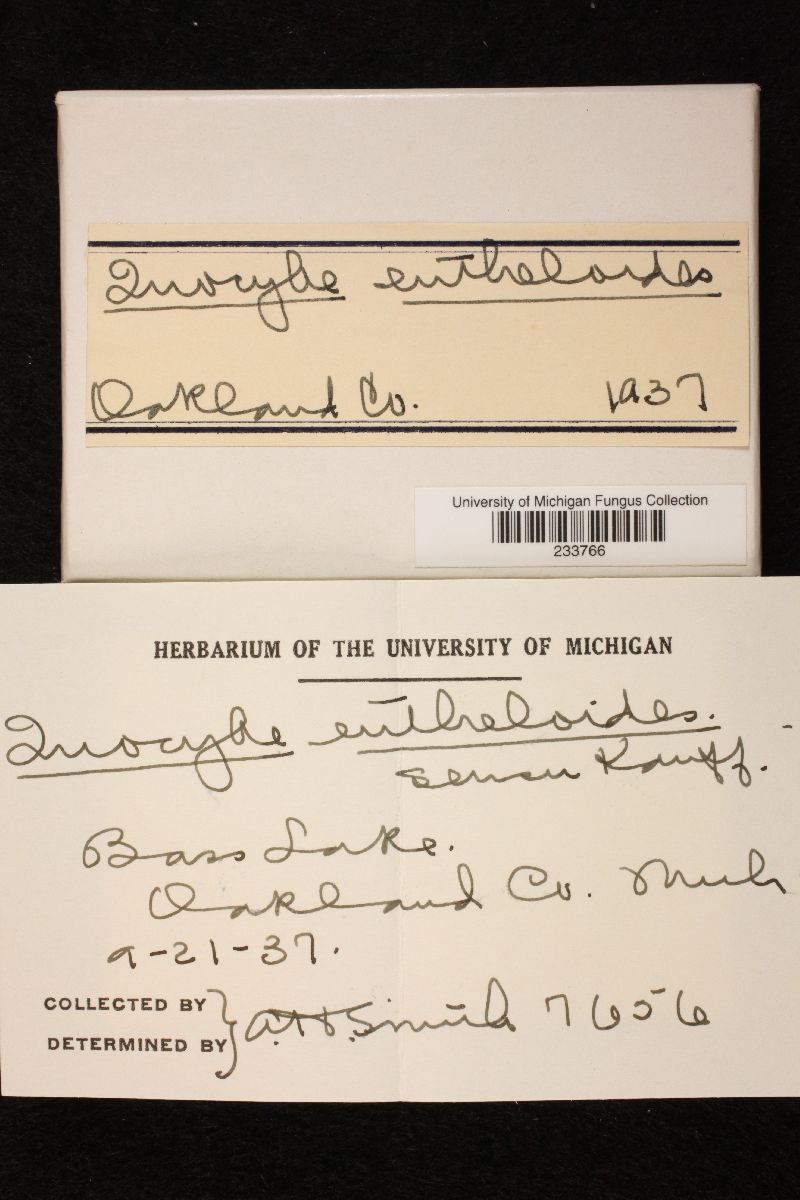 Inocybe entheloides
Oakland Co. 1937
University of Michigan Fungus Collection
233766
HERBARIUM OF THE UNIVERSITY OF MICHIGAN
Inocybe entheloides.
sensu Kauff.
Bass Lake.
Oakland Co. Mich
9-21-37.
COLLECTED BY
DETERMINED BY } A.H.Smith 7656